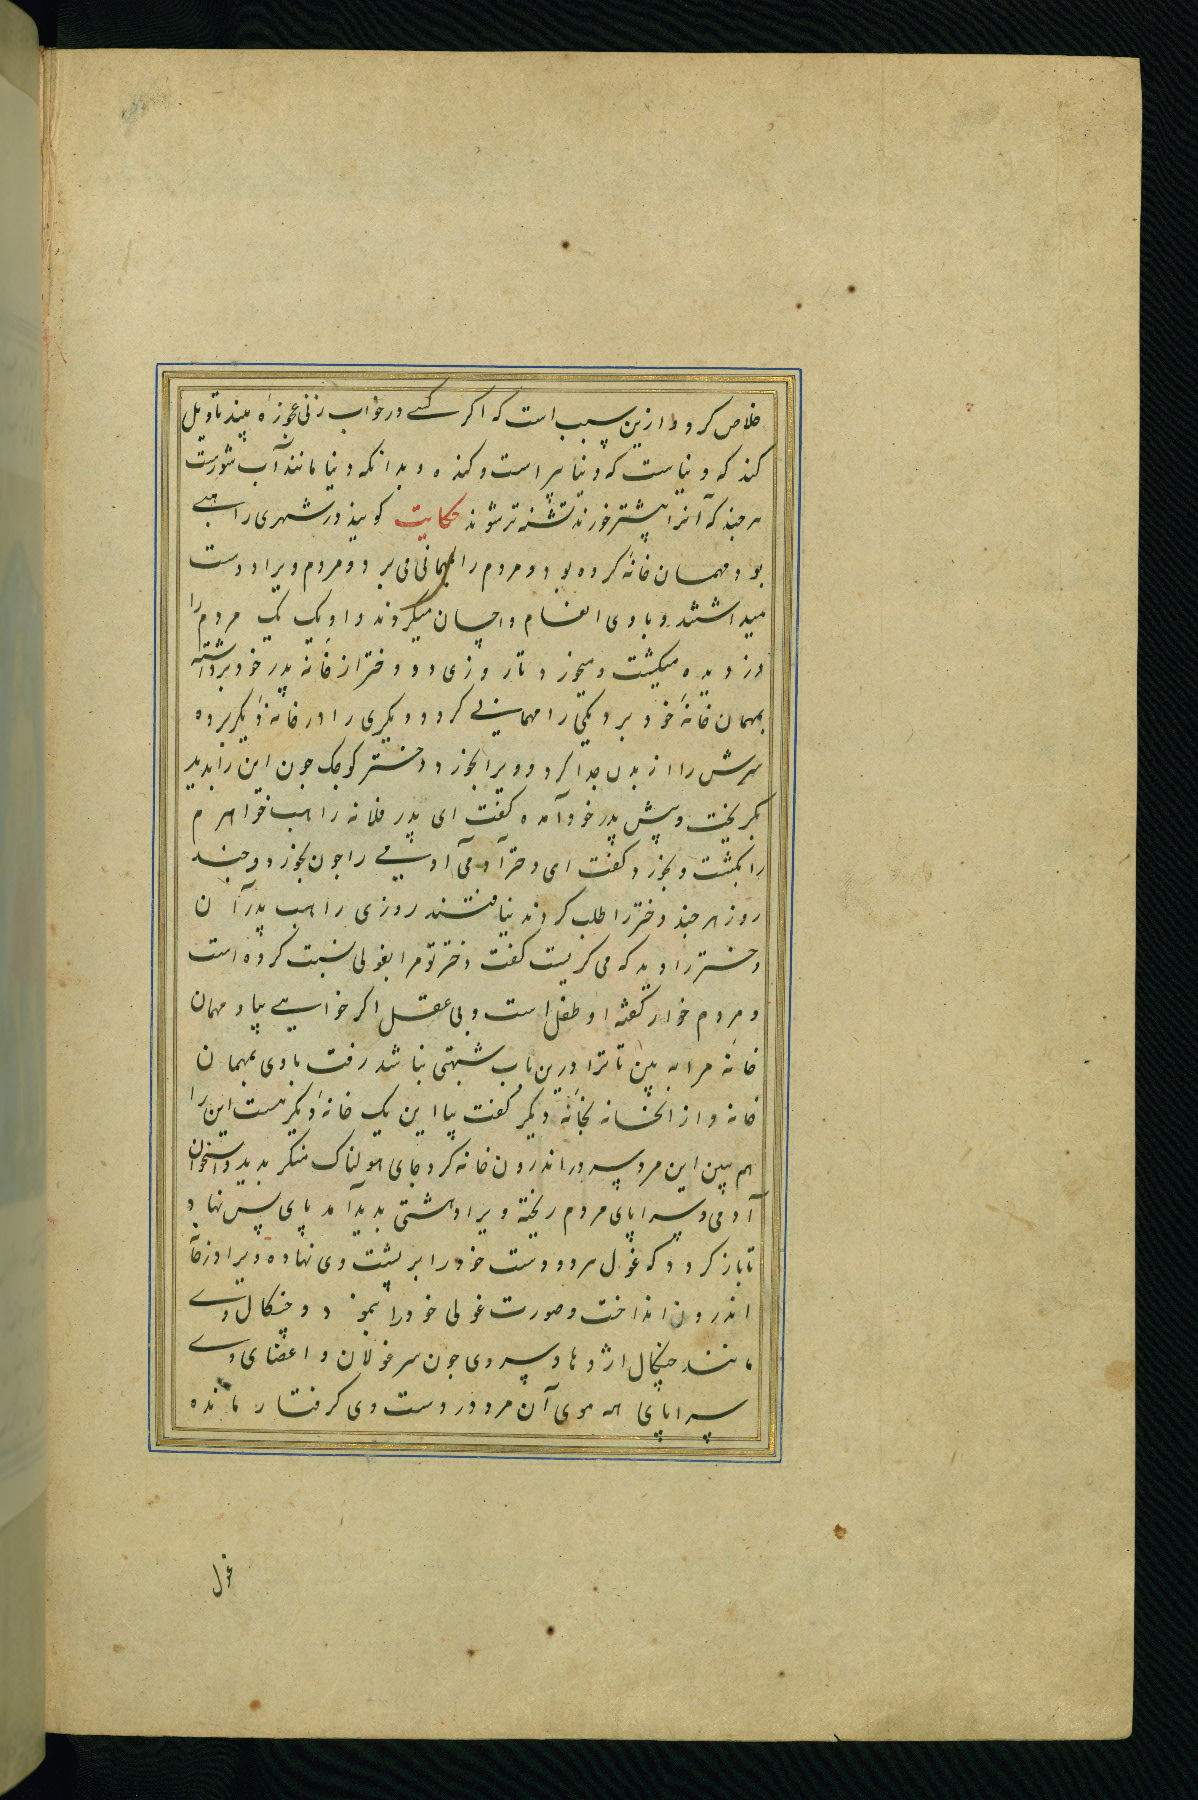 خلاص کرد و ازین سبب است که اکر کسے در خواب زنی عجوزه بیند تاویل
کند که دنیاست که دنیا پیر است و کنده و بدانکه دنیا مانند آب شورست
هر چند که آنرا بیشتر خورند تشنه تر شوند حکایت کویند در شهری راهبے
بود مهمان خانه کرده بود و مردم را بمهمانی می برد و مردم ویرا دوست
میداشتند و با وی انعام و احسان میکردند و او یک یک مردم را
دزدیده میکشت و میخورد تا روزی دو دختر از خانه پدر خود برداشته
بمهمان خانه خود برد یکی را مهمانی کرد و دیکری را در خانه دیکر برده
سرش را از بدن جدا کرد و ویرا بخورد دختر کوچک چون این را بدید
بکریخت و پیش پدر خود آمده کفت ای پدر فلانه راهب خواهرم
را بکشت و بخورد کفت ای دختر آدمی آدمی را چون بخورد و چند
روز هر چند دختر را طلب کردند نیافتند روزی راهب پدر آن
دختر را دید که می کریست کفت دختر تو مرا بغولی نسبت کرده است
و مردم خوار کفته او طفل است و بی عقل اکر خواهی بیا و مهمان
خانه مرا به بین تا ترا درین باب شبهتی نباشد رفت با وی بمهمان
خانه و از آنخانه بخانه دیکر کفت بیا این یک خانه دیکر هست این را
هم ببین این مرد سر در اندرون خانه کرد جای هولناک منکر بدید و استخوان
آدمی و سراپای مردم ریخته ویرا دهشتی بدید آمد پای پس نهاد
تا باز کردد که غول هر دو دست خود را بر پشت وی نهاده ویرا در خانه
اندرون انداخت و صورت غولی خود را بنمود و چنکال وے
مانند چنکال اژدها و سر وی چون سر غولان و اعضای وے
سراپای همه موی آن مرد در دست وی کرفتار مانده
غول